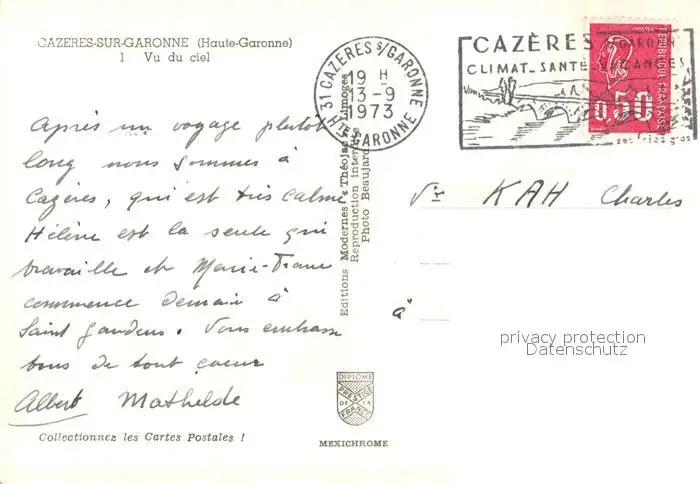 CAZERES-SUR-GARONNE (Haute-Garonne)
1 Vu du ciel
Après un voyage plutot
long nous sommes à
Cazères, qui est très calme
Hélène est la seule qui
travaille et Marie-France
commence demain à
Saint Gaudens. Vous embrasse
tous de tout coeur
Albert Mathelde
Collectionnez les Cartes Postales !
Editions Modernes « Théojac » Limoges
Reproduction interdite
Photo Beaujard
DIPLOME
PRESTIGE
DE LA
FRANCE
MEXICHROME
31 CAZERES S/GARONNE
19 H
13-9
1973
HTE GARONNE
CAZÈRES S/GARONNE
CLIMAT_SANTÉ_VACANCES
REPUBLIQUE FRANCAISE
0,50
Mr KAH Charles
à
privacy protection
Datenschutz